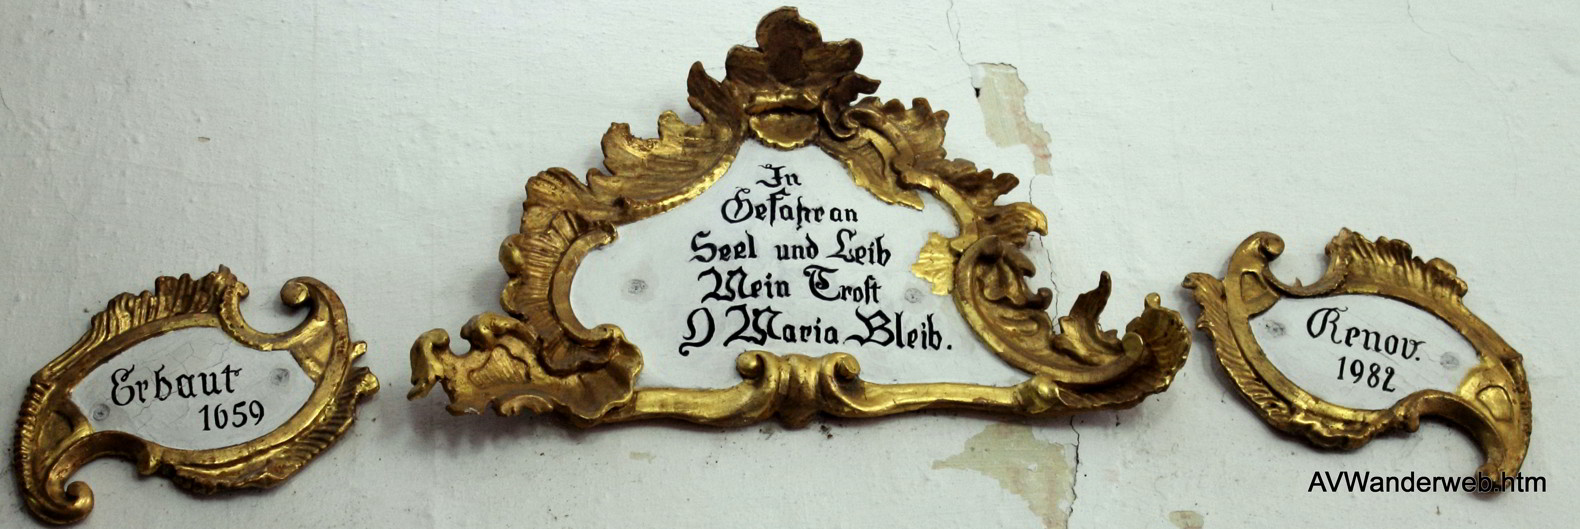 Erbaut
1659
In
Gefahr an
Seel und Leib
Mein Trost
O Maria Bleib.
Renov.
1982
AVWanderweb.htm